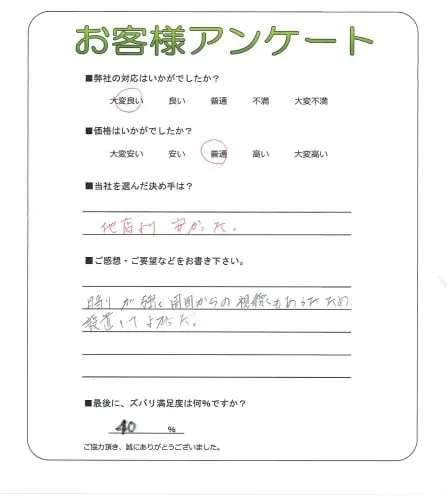 お客様アンケート
■弊社の対応はいかがでしたか？
大変良い 良い 普通 不満 大変不満
■価格はいかがでしたか？
大変安い 安い 普通 高い 大変高い
■当社を選んだ決め手は？
他店より 安かった。
■ご感想・ご要望などをお書き下さい。
日射しが強く周囲からの視線もあったため
設置してよかった。
■最後に、ズバリ満足度は何%ですか？
40 %
ご協力頂き、誠にありがとうございました。